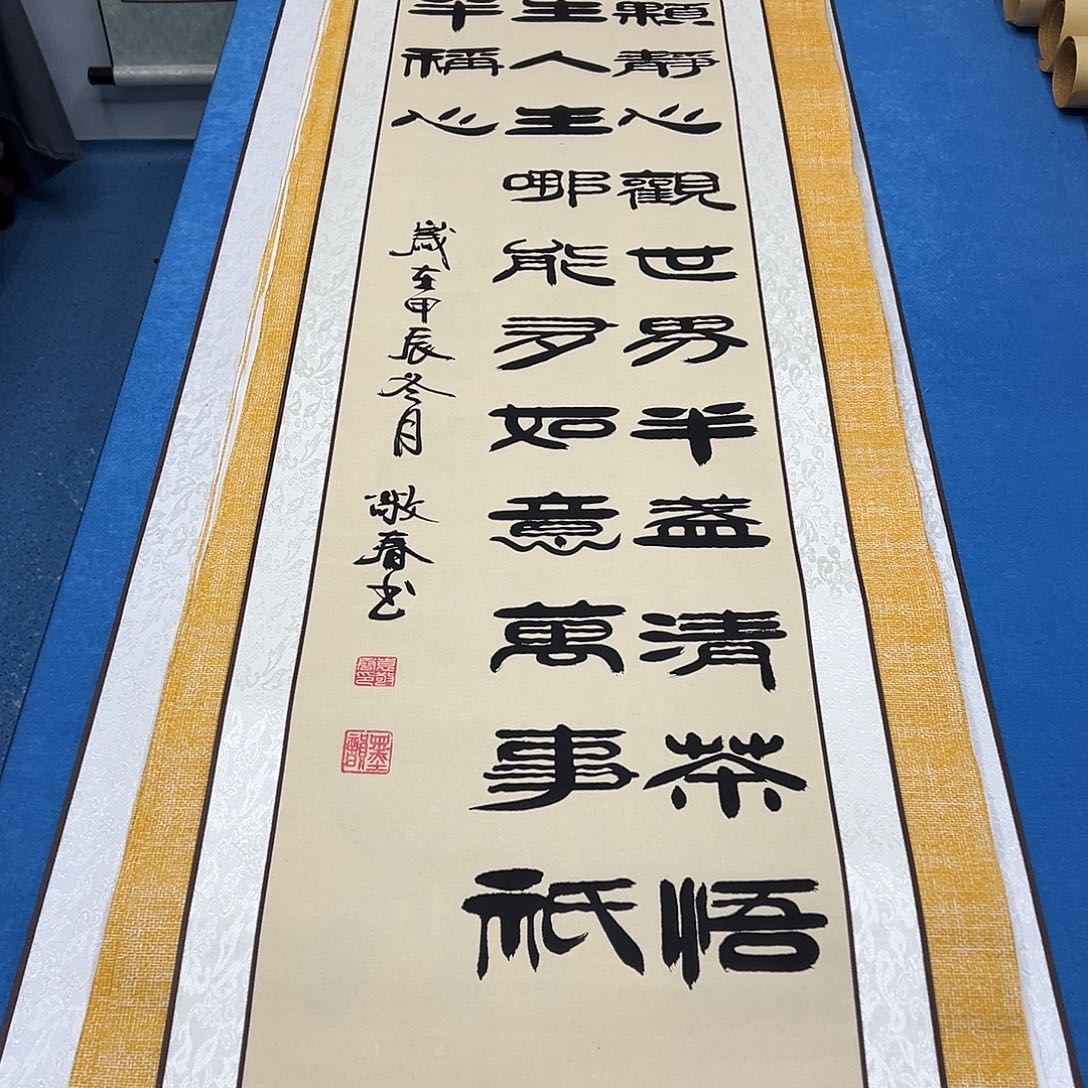 顆靜心觀世界半盞清茶悟
生人生哪能多如意萬事祇
半稱心
歲在甲辰冬月
敬春书
墨韻